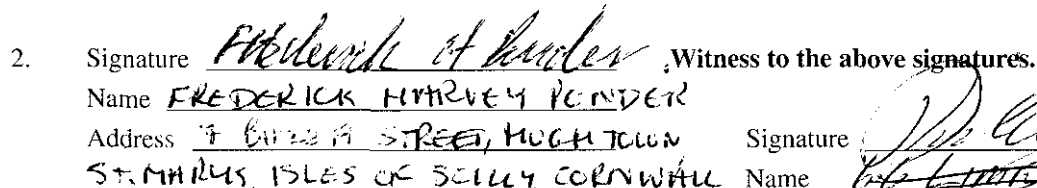 2. Signature Frederick H Pender Witness to the above signatures.
Name FREDERICK HARVEY PENDER
Address STREET, HUGH TOWN Signature
ST. MARYS, ISLES OF SCILLY CORNWALL Name